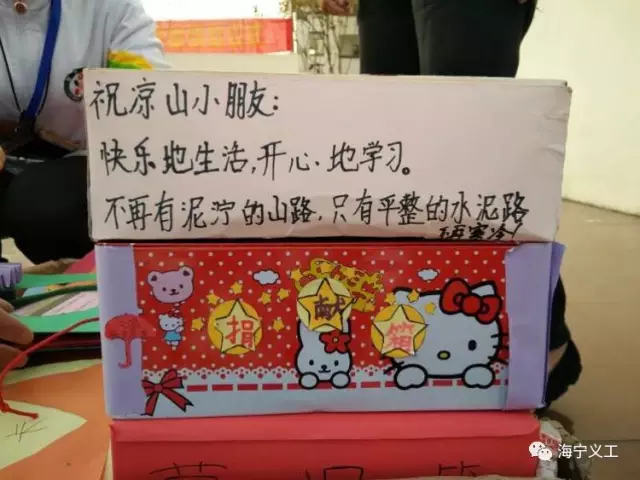 祝凉山小朋友:
快乐地生活,开心、地学习。
不再有泥泞的山路,只有平整的水泥路
不再寒冷!
捐献箱
海宁义工